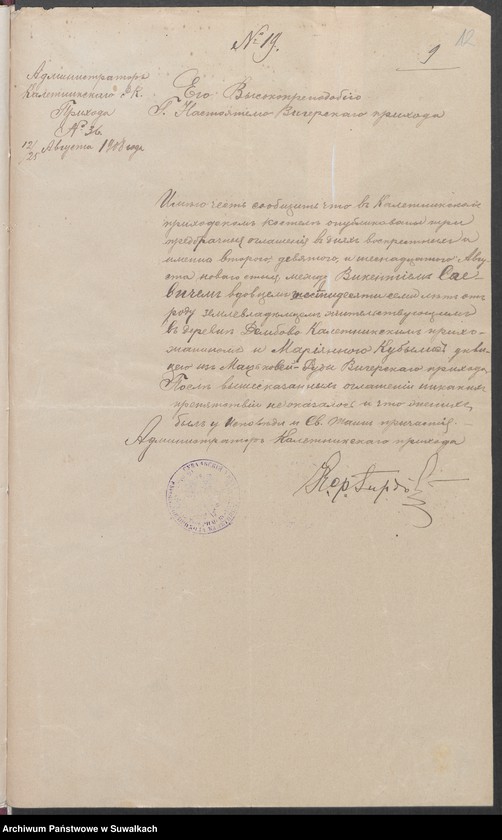 № 19.
9
12
Администраторъ
Калетникскаго Р. К.
Прихода
№ 36
12/25 Августа 1908 года
Его Высокопреподобію
Г. Настоятелю Вигерскаго прихода
Имѣю честь сообщить что въ Калетникскомъ
приходскомъ костелѣ опубликованы три
предбрачныя оглашенія въ дняхъ воскресныхъ а
именно второго, девятого, и шеснадцатого Авгу
ста новаго стиля, между Викентіемъ Сае-
вичемъ вдовцемъ шестидесяти семи лѣтъ отъ
роду землевладѣльцемъ жительствующимъ
въ деревнѣ Дембово Калетникскимъ прихо-
жаниномъ и Маріянною Кубылисъ дѣви
цею изъ Мацьковой-Руды Вигерскаго прихода
Послѣ вышесказанныхъ оглашеній никакихъ
препятствій не оказалось и что женихъ
былъ у исповѣди и Св. Таинъ причастія. —
Администраторъ Калетникскаго прихода
Archiwum Państwowe w Suwałkach